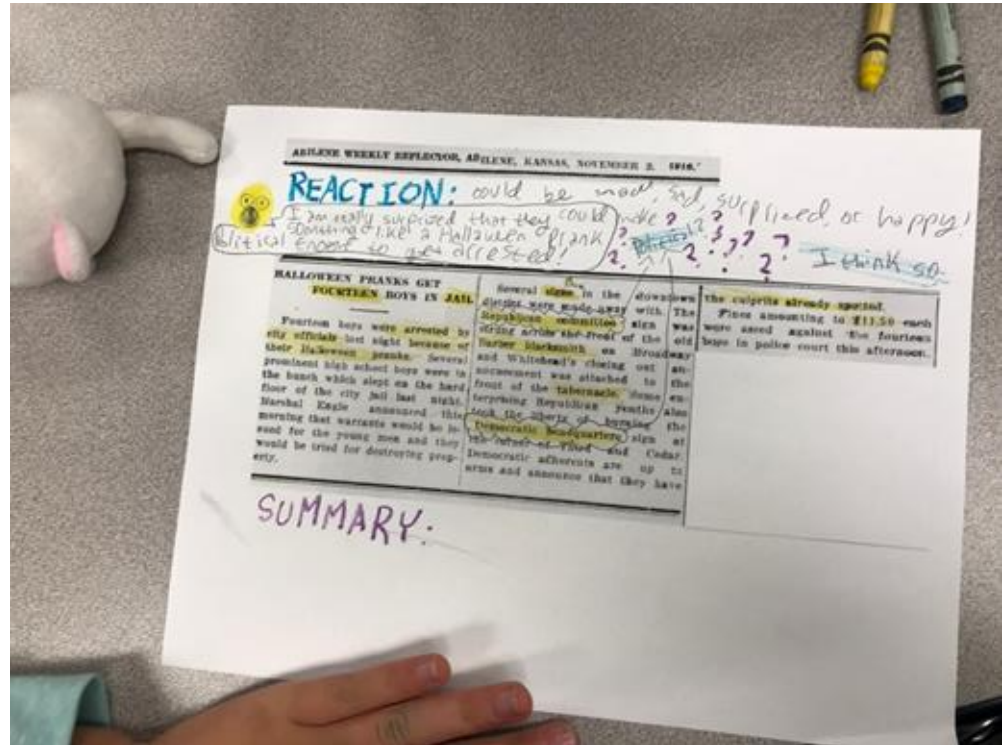 ABILENE WEEKLY REFLECTOR, ABILENE, KANSAS, NOVEMBER 2, 1916.
REACTION: could be mad, sad, surprized, or happy!
I am really surprized that they could make
something like a Halloween prank
political to get arrested!
political?
I think so
HALLOWEEN PRANKS GET
FOURTEEN BOYS IN JAIL
Fourteen boys were arrested by
city officials last night because of
their Halloween pranks. Several
prominent high school boys were in
the bunch which slept on the hard
floor of the city jail last night.
Marshal Engle announced this
morning that warrants would be is-
sued for the young men and they
would be tried for destroying prop-
erty.
Several signs in the downtown
district were made away with. The
Republican committee sign was
string across the front of the old
Barber blacksmith on Broadway
and Whitehead's closing out an-
nouncement was attached to the
front of the tabernacle. Some en-
terprising Republican youths also
took the liberty of burning the
Democratic headquarters sign at
the corner of Third and Cedar.
Democratic adherents are up to
arms and announce that they have
the culprits already spotted.
Fines amounting to $11.50 each
were assed against the fourteen
boys in police court this afternoon.
SUMMARY: